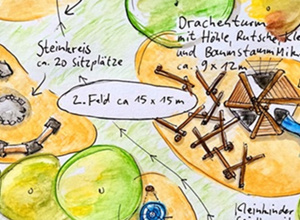 Drachenturm
mit Höhle, Rutsche, Kle
und Baumstamm Mik
ca. 9 x 12m
Steinkreis
ca. 20 Sitzplätze
2. Feld ca 15 x 15 m
Kleinkinder